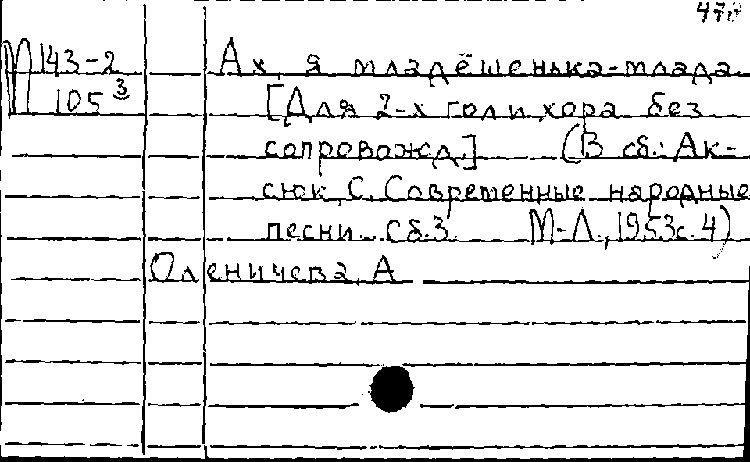 М 143-2 Ах, я младёшенька-млада.
105³ [Для 2-х гол. и хора без
сопровожд.] (В сб.: Ак-
сюк, С. Современные народные
песни. Сб.3. М-Л., 1953 с. 4)
Оленичева, А